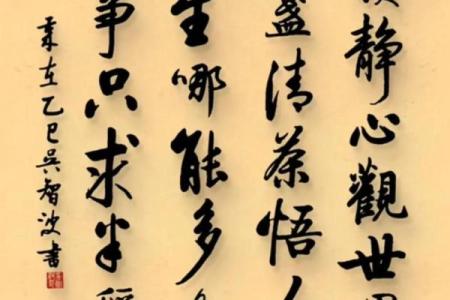 静心觀世
盞清茶悟人
生哪能多
事只求半
在乙巳吳智波書